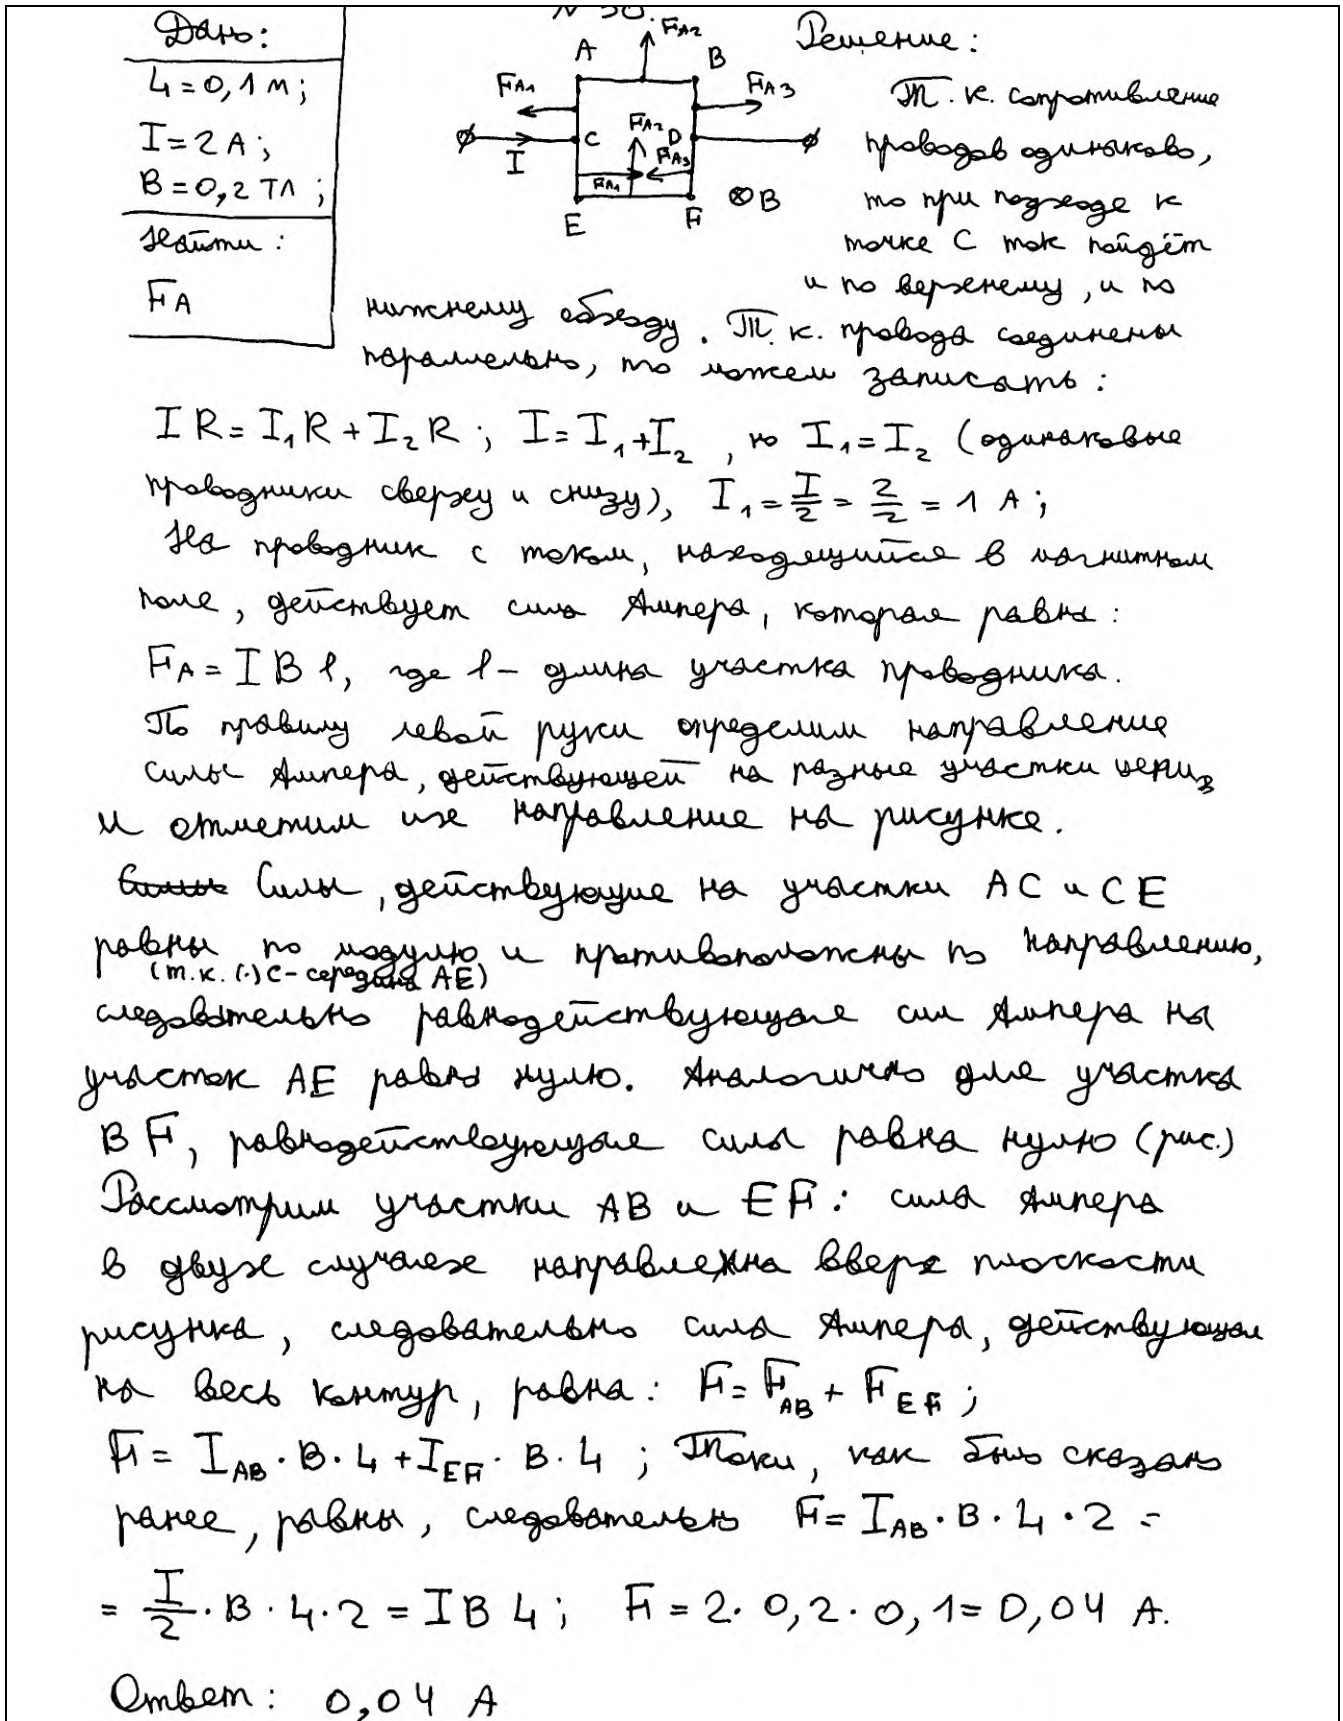 N 30.
Дано:
L = 0,1 м;
I = 2 A;
B = 0,2 Тл;
Найти:
FA
FA2
A
B
FA1
FA3
C
FA2
D
I
FA1
FA3
E
F
⊗B
Решение:
Т. к. сопротивление
проводов одинаково,
то при подходе к
точке C ток пойдёт
и по верхнему, и по
нижнему обходу. Т. к. провода соединены
параллельно, то можем записать:
IR = I₁R + I₂R; I = I₁ + I₂, но I₁ = I₂ (одинаковые
проводники сверху и снизу), I₁ = I/2 = 2/2 = 1 A;
На проводник с током, находящийся в магнитном
поле, действует сила Ампера, которая равна:
FA = I B l, где l – длина участка проводника.
По правилу левой руки определим направление
силы Ампера, действующей на разные участки цепи,
и отметим их направление на рисунке.
Силы, действующие на участки AC и CE
равны по модулю и противоположны по направлению,
(т.к. (·) C - середина AE)
следовательно равнодействующая сил Ампера на
участок AE равна нулю. Аналогично для участка
BF, равнодействующая силы равна нулю (рис.)
Рассмотрим участки AB и EF: сила Ампера
в двух случаях направлена вверх плоскости
рисунка, следовательно сила Ампера, действующая
на весь контур, равна: F = F_AB + F_EF;
F = I_AB · B · L + I_EF · B · L; Токи, как было сказано
ранее, равны, следовательно F = I_AB · B · L · 2 =
= I/2 · B · L · 2 = I B L; F = 2 · 0,2 · 0,1 = 0,04 A.
Ответ: 0,04 A